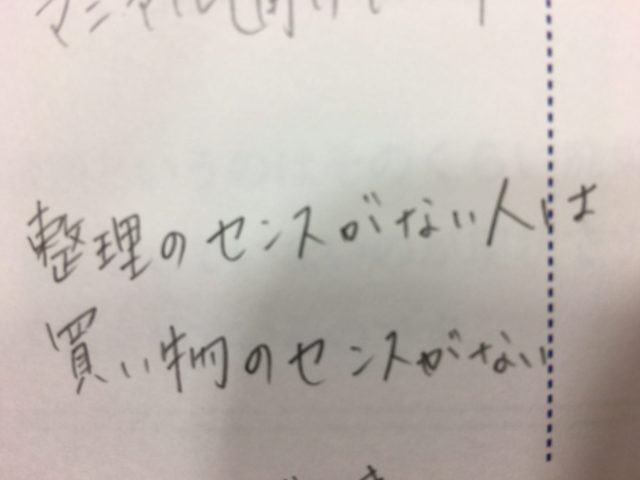 整理のセンスがない人は
買い物のセンスがない